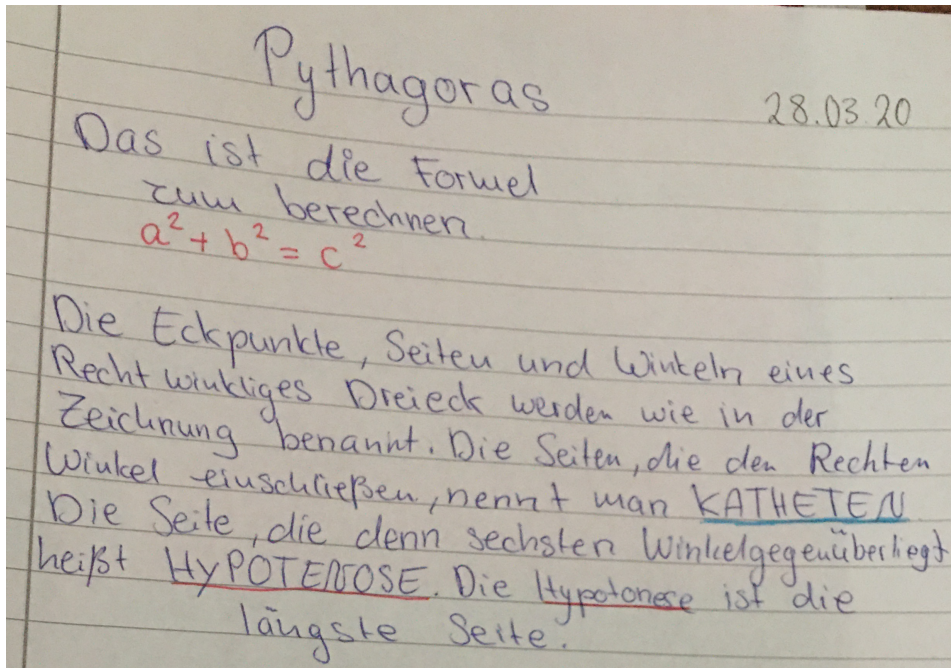 Pythagoras
28.03.20
Das ist die Formel
zum berechnen.
a² + b² = c²
Die Eckpunkte, Seiten und Winkeln eines
Rechtwinkliges Dreieck werden wie in der
Zeichnung benannt. Die Seiten, die den Rechten
Winkel einschließen, nennt man KATHETEN
Die Seite, die denn sechsten Winkelgegenüberliegt
heißt HYPOTENOSE. Die Hypotonese ist die
längste Seite.